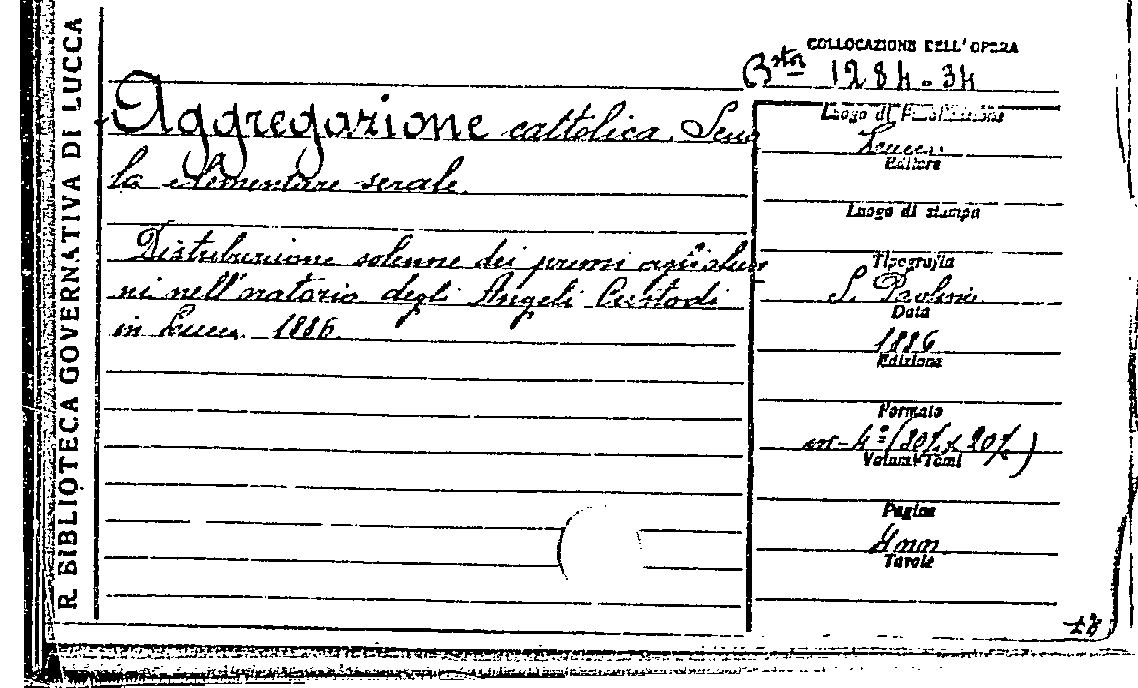 R. BIBLIOTECA GOVERNATIVA DI LUCCA
COLLOCAZIONE DELL'OPERA
Bta 1284.34
Aggregazione cattolica. Scuo
la elementare serale.
Distribuzione solenne dei premi agli alun
ni nell'oratorio degli Angeli Custodi
in Lucca. 1886.
Luogo di Pubblicazione
Lucca
Editore
Luogo di stampa
Tipografia
S. Paolino
Data
1886
Edizione
Formato
in-4º (30½ x 20½)
Volumi-Tomi
Pagine
4 nn.
Tavole